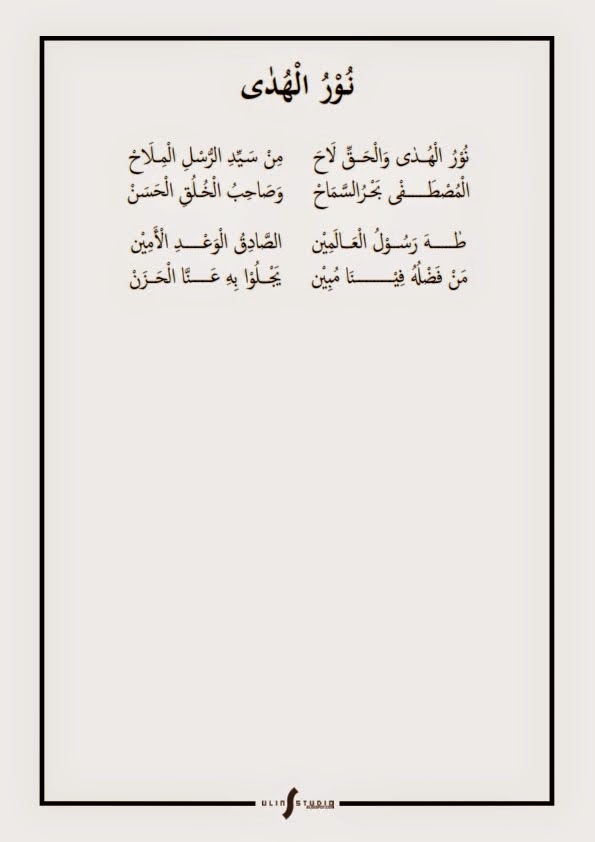 نُوْرُ الْهُدٰى
نُوْرُ الْهُـدٰى وَالْحَـقِّ لَاحَ مِنْ سَـيِّدِ الرُّسْلِ الْمِـلَاحْ
الْمُصْطَـــفْى بَحْـرُالسَّمَاحْ وَصَاحِبُ الْخُـلُقِ الْحَسَنْ
طٰـــهَ رَسُـوْلُ الْعَـالَمِيْن الصَّادِقُ الْوَعْـــدِ الْأَمِيْن
مَنْ فَضْلُهُ فِيْـــــنَا مُبِيْن يَجْـلُوْا بِهِ عَـــنَّا الْحَـزَنْ
ULIN STUDIO